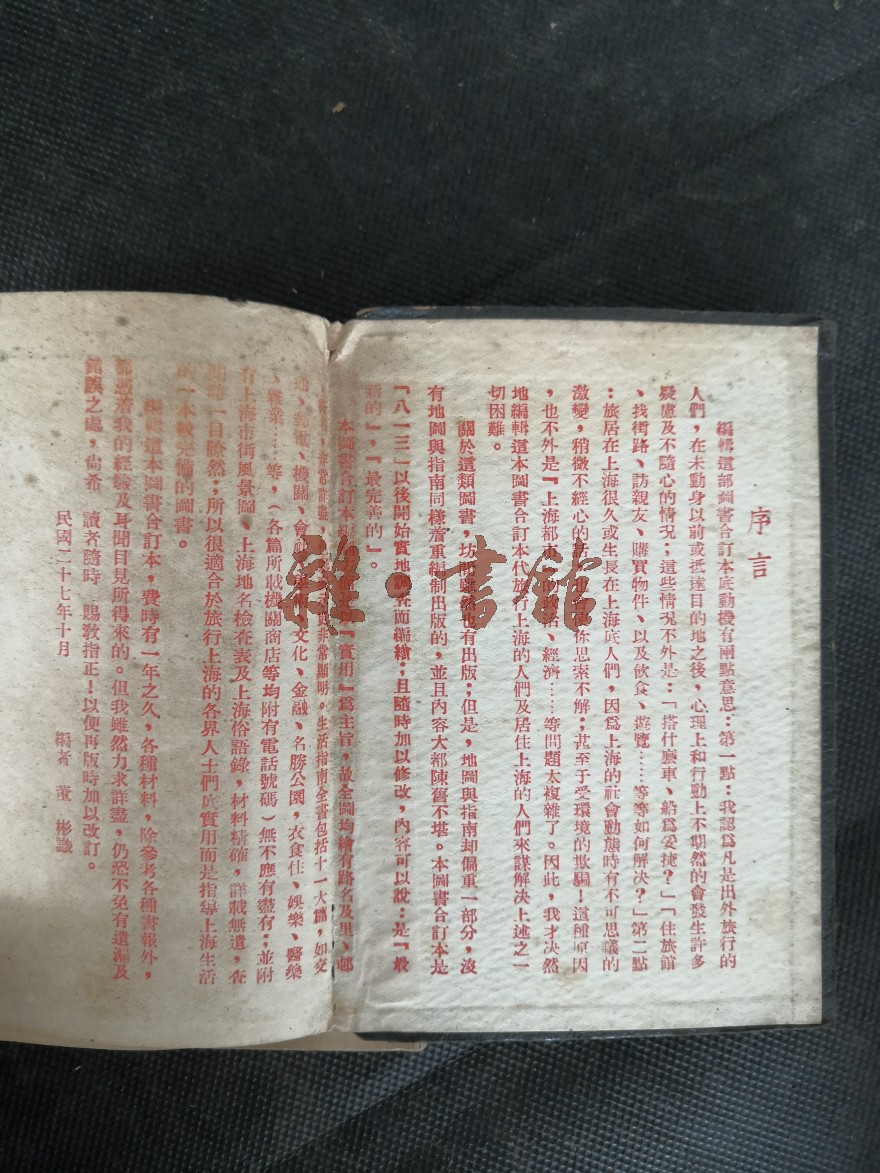 序言
編輯這部圖書合訂本底動機有兩點意思:第一點:我認爲凡是出外旅行的
人們,在未動身以前或抵達目的地之後,心理上和行動上不期然的會發生許多
疑慮及不隨心的情況;這些情況不外是:「搭什麽車、船爲妥捷?」「住旅館
、找街路、訪親友、購買物件、以及飲食、遊覽……等等如何解決?」第二點
:旅居在上海很久或生長在上海底人們,因爲上海的社會動態時有不可思議的
激變,稍微不經心的 你思索不解;甚至于受環境的欺騙!這種原因
,也不外是『上海都市 、經濟……等問題太複雜了。因此,我才決然
地編輯這本圖書合訂本代旅行上海的人們及居住上海的人們來謀解决上述之一
切困難。
關於這類圖書,坊間雖然也有出版;但是,地圖與指南却偏重一部分,沒
有地圖與指南同樣着重編制出版的,並且內容大都陳舊不堪。本圖書合訂本是
「八一三」以後開始實地調查而編繪;且隨時加以修改,內容可以說:是『最
新的』,『最完善的』。
本圖書合訂本 『實用』爲主旨,故全圖均繪有路名及里、邨
非常詳盡, 非常顯明。生活指南全書包括十一大篇,如交
通、郵電、機關、會社、 、文化、金融、名勝公園,衣食住、娛樂、醫藥
、雜業……等,(各篇所載機關商店等均附有電話號碼)無不應有盡有;並附
有上海市街風景圖、上海地名檢查表及上海俗語錄,材料精確,詳載無遺,查
閱時一目瞭然;所以很適合於旅行上海的各界人士們底實用而是指導上海生活
的一本較完備的圖書。
編輯這本圖書合訂本,費時有一年之久,各種材料,除參考各種書報外,
都憑着我的經驗及耳聞目見所得來的。但我雖然力求詳盡,仍恐不免有遺漏及
錯誤之處,尙希 讀者隨時 賜敎指正!以便再版時加以改訂。
民國二十七年十月 編者 董 彬識
雜·書館